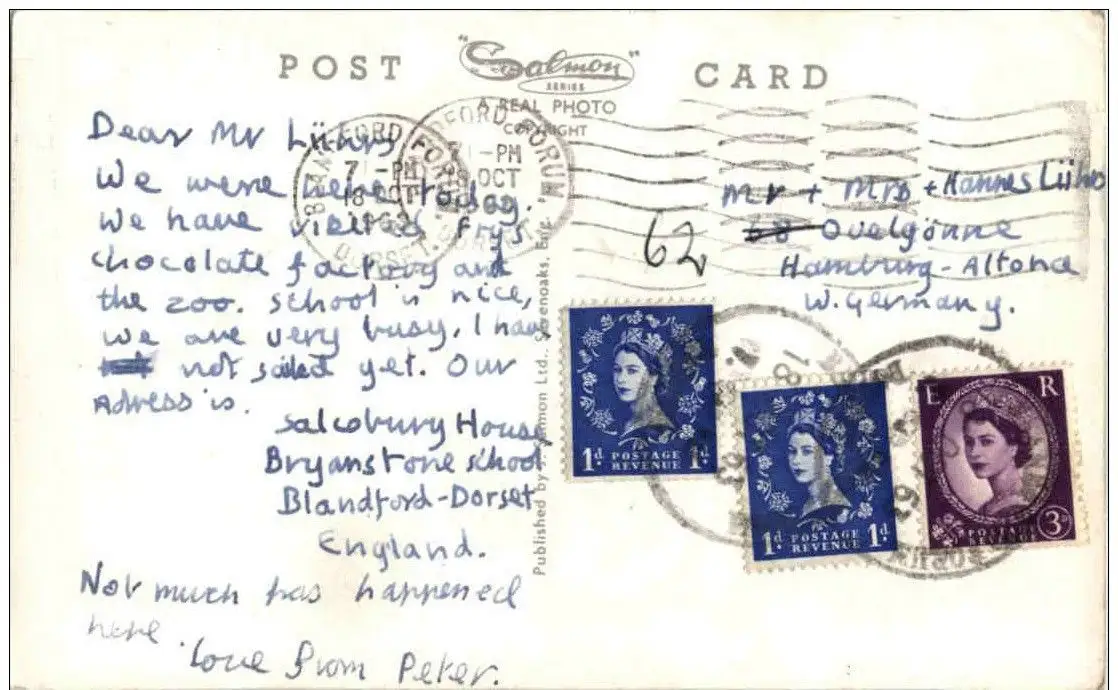 POST "Salmon" CARD
SERIES
A REAL PHOTO
COPYRIGHT
Dear Mr Lührs
We were here today.
We have visited Frys
chocolate factory and
the zoo. School is nice,
we are very busy. I have
not sailed yet. Our
Adress is.
Salesbury House
Bryanstone school
Blandford-Dorset
England.
Not much has happened
here.
Love from Peter.
BLANDFORD FORUM
7 1-PM
18 OCT
DORSET.
BLANDFORD FORUM
1-PM
18 OCT
DORSET.
Published by J. Salmon Ltd., Sevenoaks, Eng.
Mr + Mrs + Hannes Lührs
68 Ovelgönne
62
Hamburg-Altona
W. Germany.
1d POSTAGE REVENUE 1d
1d POSTAGE REVENUE 1d
E R
POSTAGE REVENUE 3d